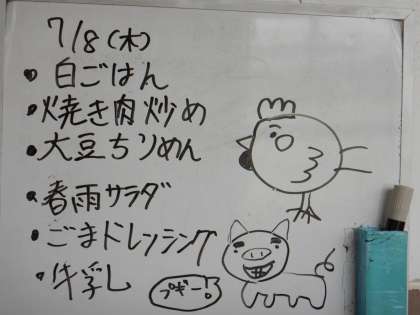 7/8(木)
・白ごはん
・焼き肉炒め
・大豆ちりめん
・春雨サラダ
・ごまドレッシング
・牛乳
ブギー!